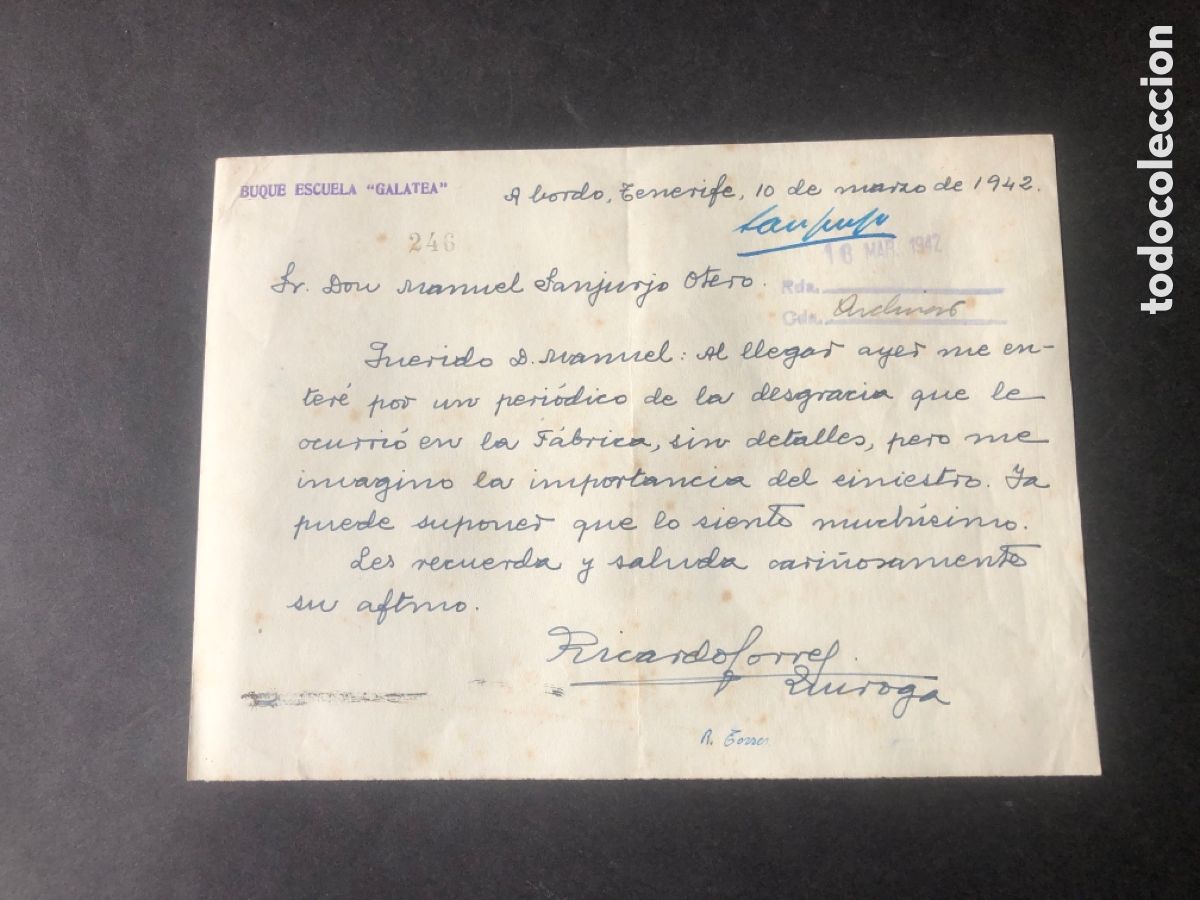 BUQUE ESCUELA "GALATEA"
A bordo, Tenerife, 10 de marzo de 1942.
Sanjurjo
246
16 MAR. 1942
Sr. Don Manuel Sanjurjo Otero.
Rda.
Cda. Archivar
Querido D. Manuel: Al llegar ayer me en-
teré por un periódico de la desgracia que le
ocurrió en la Fábrica, sin detalles, pero me
imagino la importancia del siniestro. Ya
puede suponer que lo siento muchísimo.
Les recuerda y saluda cariñosamente
su aftmo.
Ricardo Torres
Quiroga
R. Torres
todocoleccion